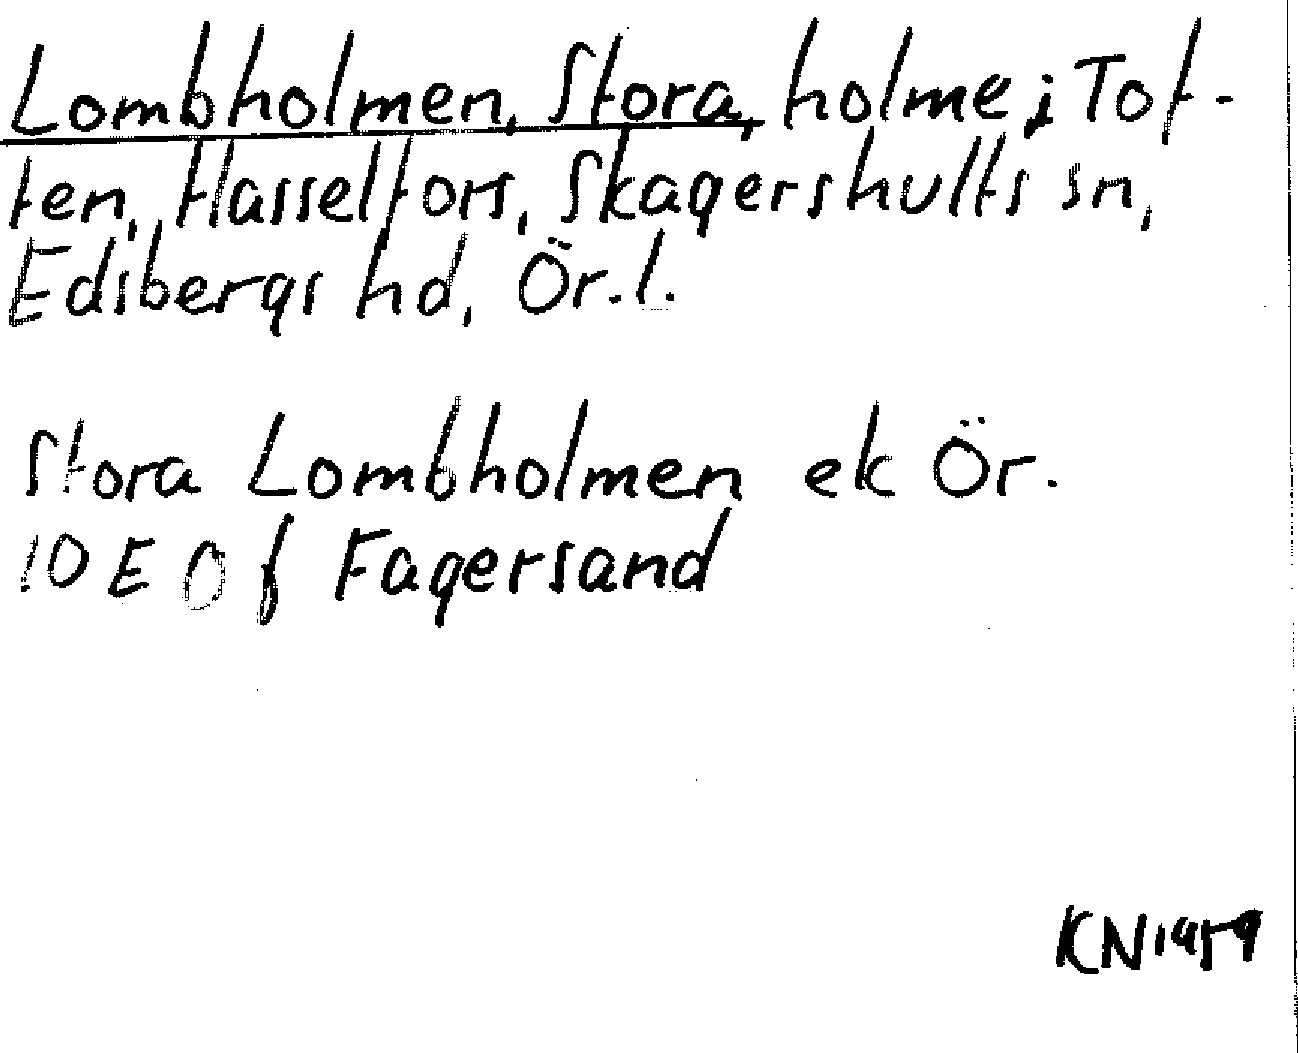 Lombholmen, Stora, holme i Tof-
ten, Hasselfors, Skagershults sn,
Edsbergs hd, Ör. l.
Stora Lombholmen ek Ör.
10 E 0 f Fagersand
KN 1959